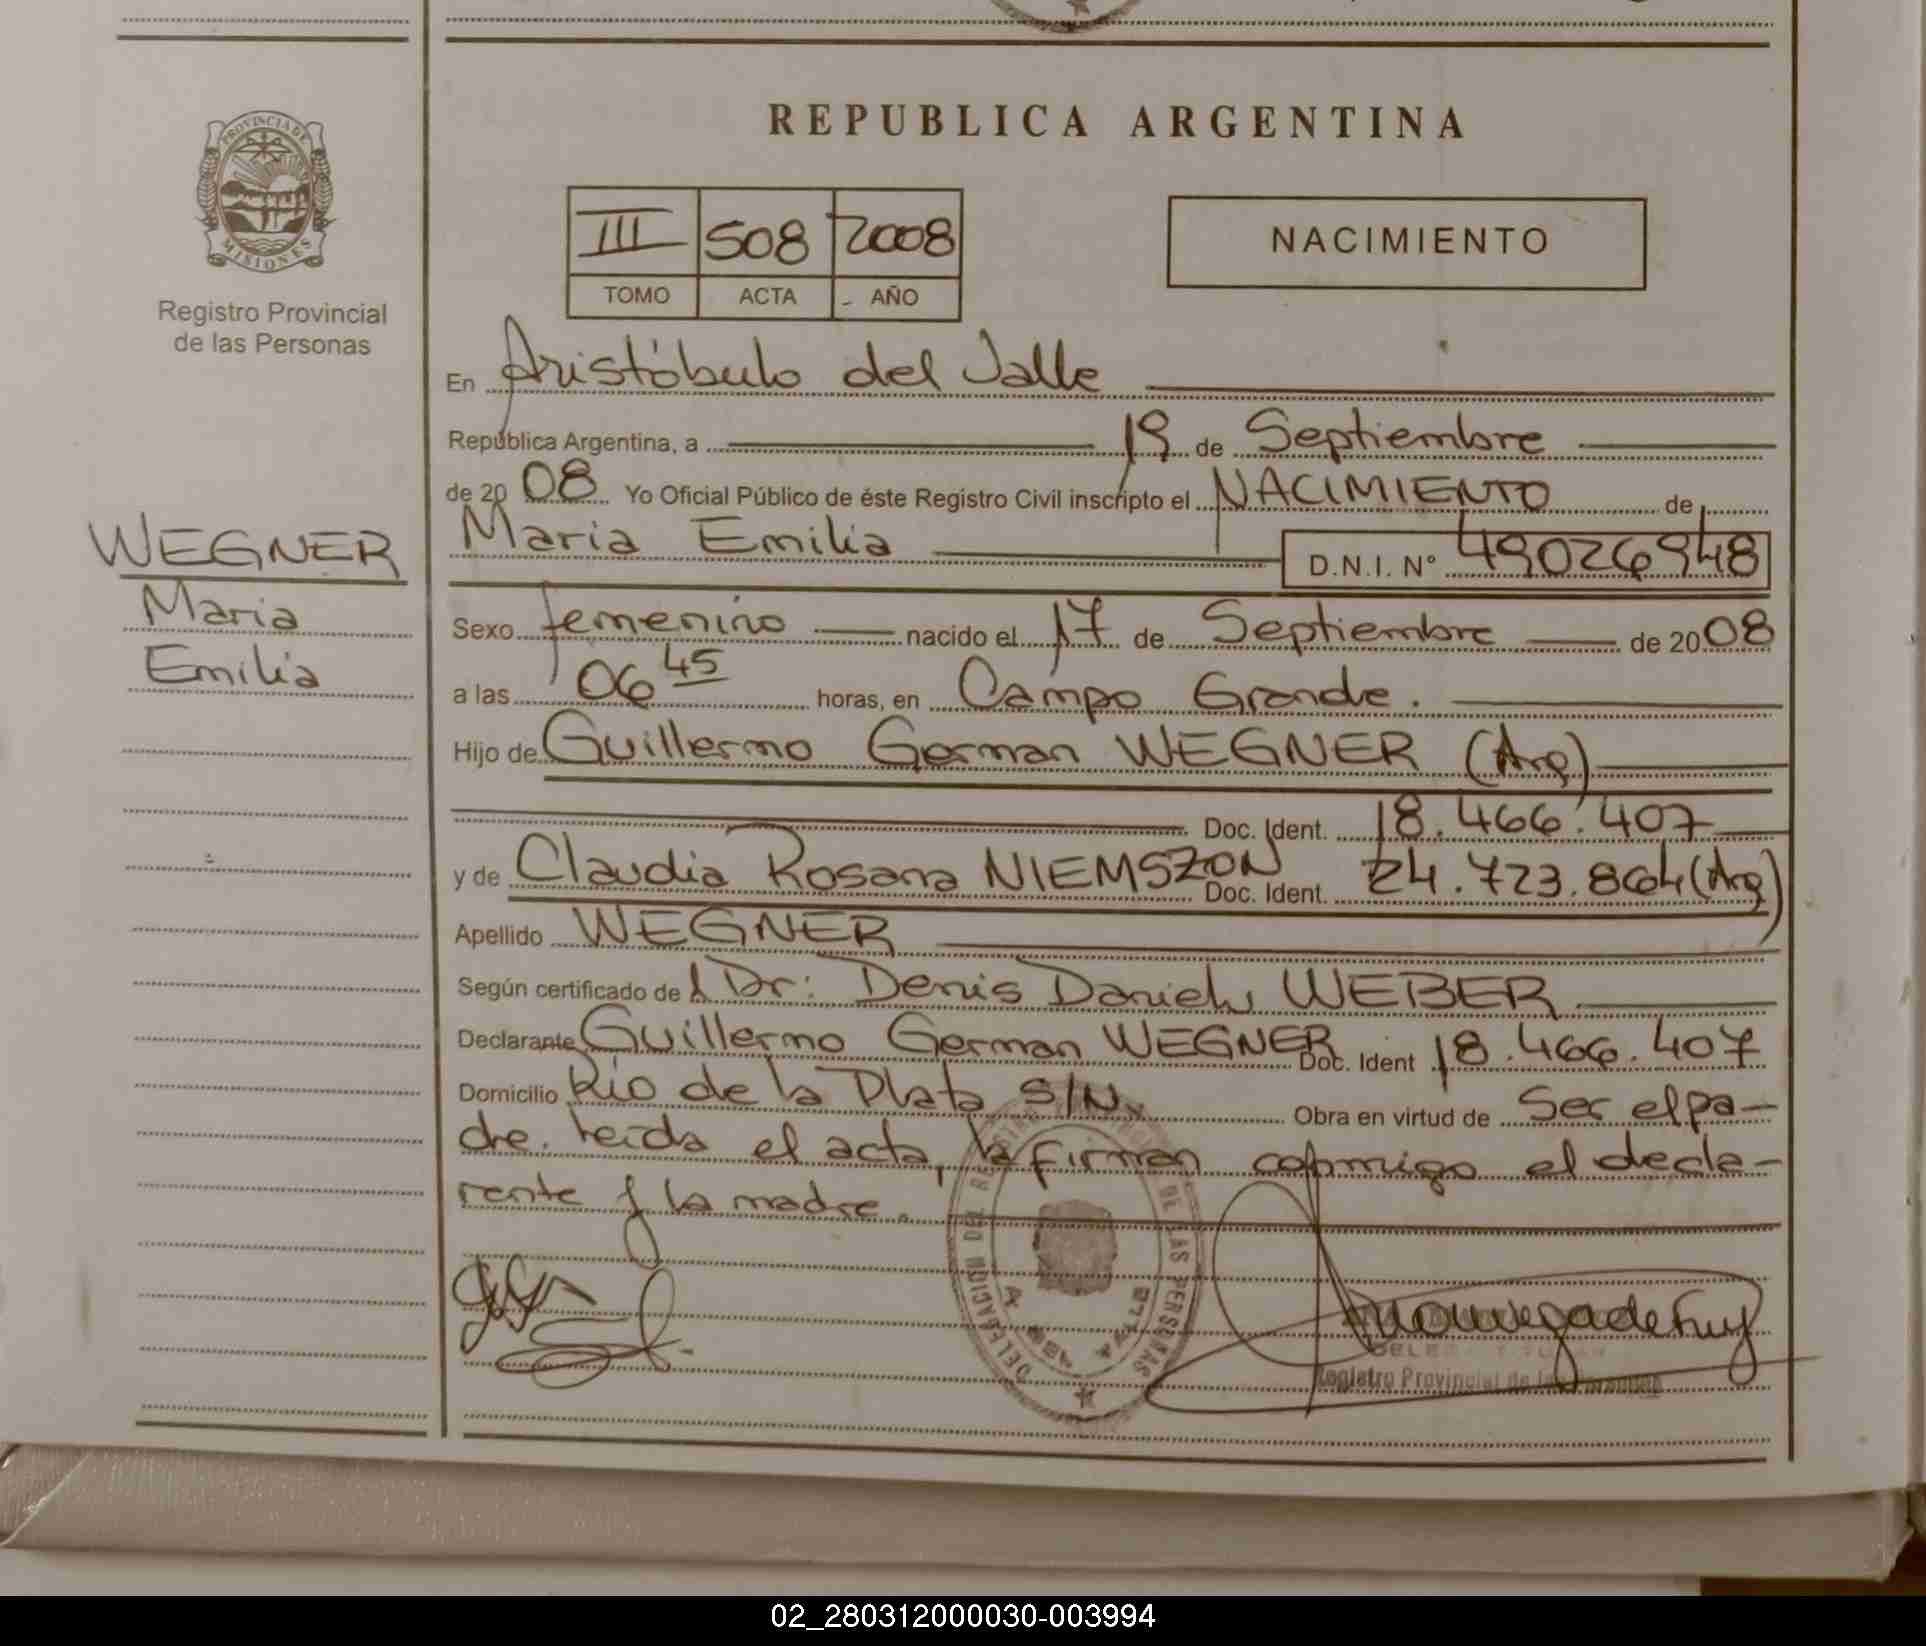 PROVINCIA DE
MISIONES
Registro Provincial
de las Personas
WEGNER
Maria
Emilia
REPUBLICA ARGENTINA
III 508 2008
TOMO ACTA AÑO
NACIMIENTO
En Aristóbulo del Valle
República Argentina, a 19 de Septiembre
de 20 08 Yo Oficial Público de éste Registro Civil inscripto el NACIMIENTO de
Maria Emilia D.N.I. Nº 49026948
Sexo femenino nacido el 17 de Septiembre de 20 08
a las 06 45 horas, en Campo Grande.
Hijo de Guillermo German WEGNER (Arg)
Doc. Ident. 18.466.407
y de Claudia Rosana NIEMSZON Doc. Ident. 24.723.864 (Arg)
Apellido WEGNER
Según certificado de Dr: Denis Daniel WEBER
Declarante Guillermo German WEGNER Doc. Ident 18.466.407
Domicilio Rio de la Plata S/N. Obra en virtud de Ser el pa-
dre. leida el acta, la firman conmigo el decla-
rante y la madre.
DELEGACION DEL REGISTRO DE LAS PERSONAS
Registro Provincial de las Personas
02_280312000030-003994